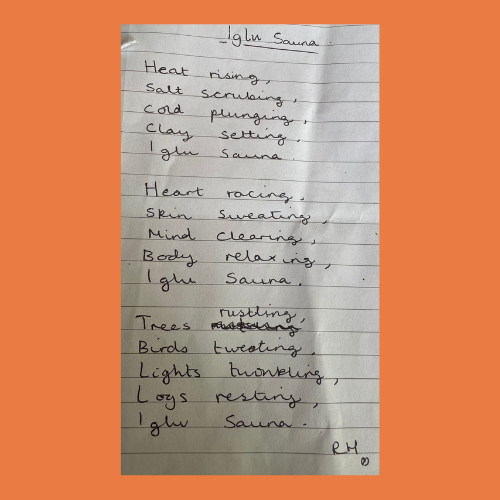 Iglu Sauna.
Heat rising,
Salt scrubing,
Cold plunging,
Clay setting,
Iglu Sauna.
Heart racing,
Skin sweating,
Mind clearing,
Body relaxing,
Iglu Sauna.
rustling,
Trees
Birds tweeting,
Lights twinkling,
Logs resting,
Iglu Sauna.
RM